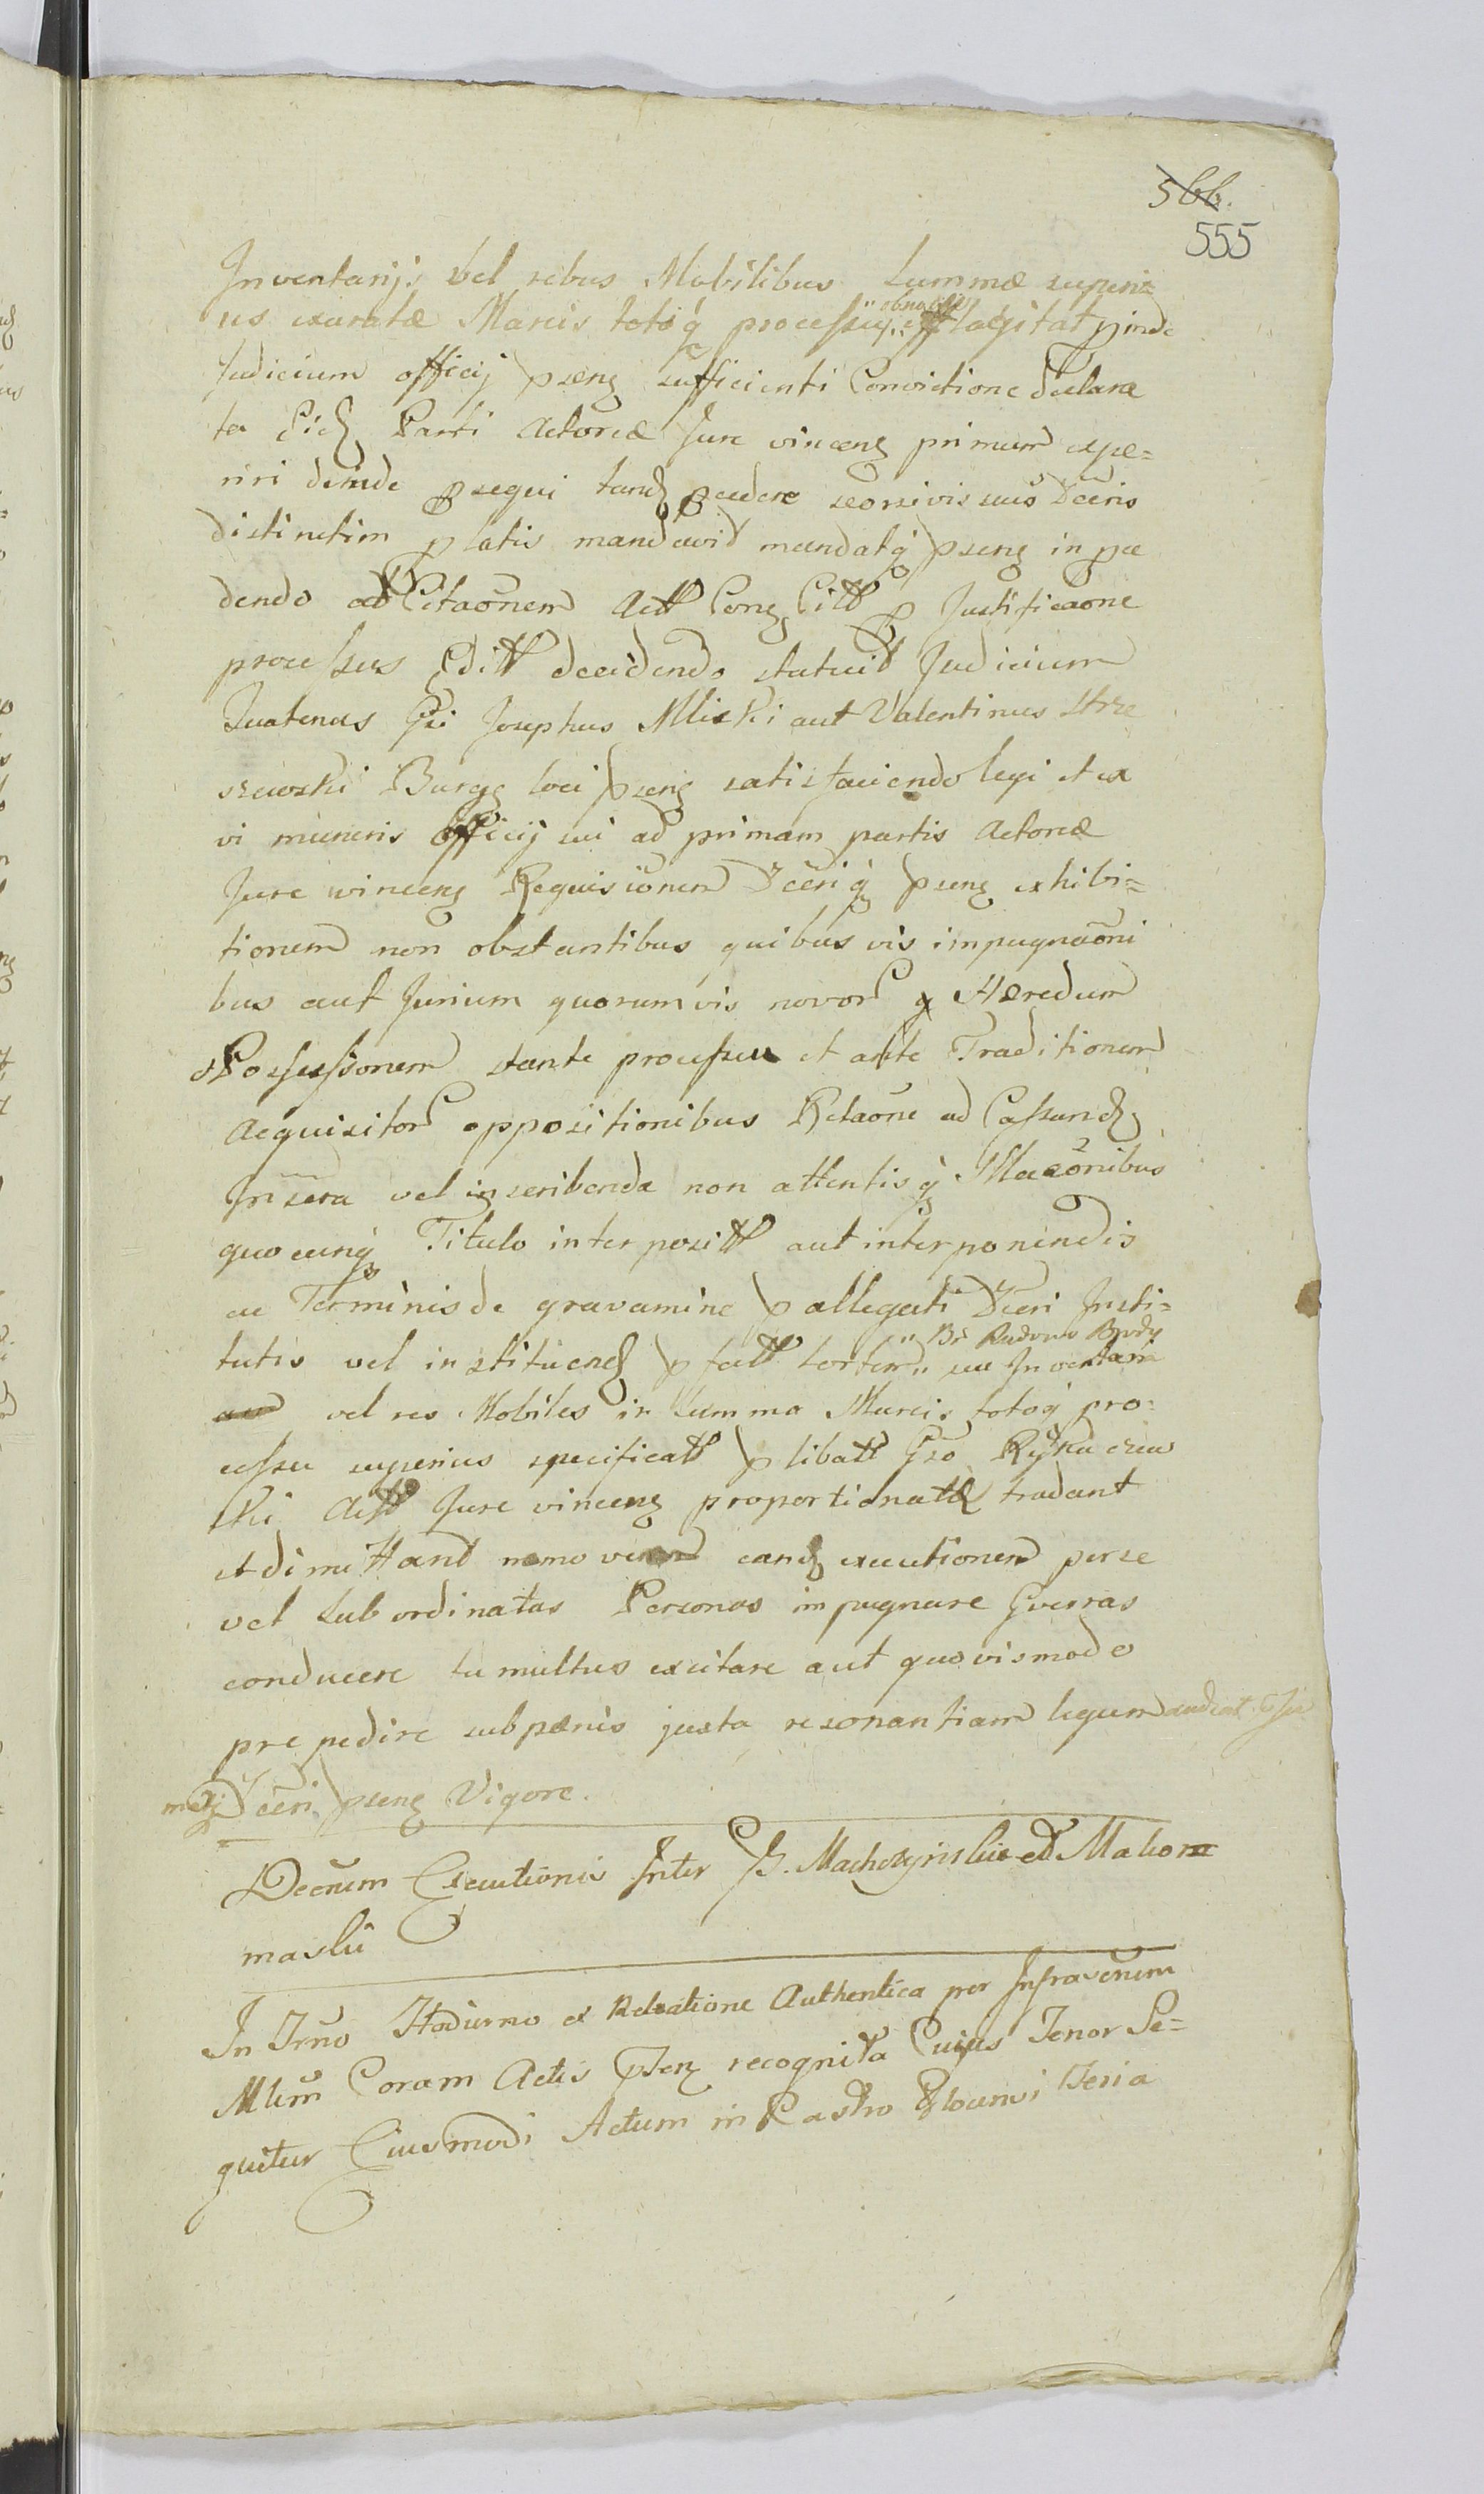 566.
555
Inventarijs vel rebus Mobilibus Summæ superi=
us exaratæ Marcis totoq processui obnoxijs flagitat pinde
Judicium officij psens sufficienti Convictione declara
ta Parti Actoreæ Jure vincens primum expe=
riri deinde psequi tand pcedere seorsivis suis Dcēris
distinctim platis mandavit mandatq psens in pce
dendo ad Citaōnem Actt Cons Citt p Justificaōne
processus Editt decidendo statuit Judicium
Quatenus Gsi Josephus Mlicki aut Valentinus Strze
szewski Burgs loci psens satisfaciendo legi et ex
vi muneris officij sui ad primam partis Actoreæ
Jure vincens Requisiōnem Dcēriq psens exhibi=
tionem non obstantibus quibus vis impugnaōni
bus aut Jurium quorumvis novor q Hæredum
Possessionem stante processu et ante Traditionem
Acquisitor oppositionibus Relaōne ad Cassand
Inscra vel inscribenda non attentis q Maōnibus
quocunq Titulo interpositt aut interponendis
ac Terminis de gravamine p allegati Dcēri Insti=
tutis vel instituend p fatt Sortem " Br Rudowo Brody
" seu Inventaria
vel res Mobiles in Summa Marcis totoq pro=
cessu superius specificatt p libatt Gso Rykaczew
ski Actt Jure vincens proportionatæ tradant
et dimittant nemo vero eand executionem per se
vel Subordinatas Personas impugnare Guerras
conducere tumultus excitare aut quovismodo
prepedire sub pænis juxta resonantiam legum audeat.
Dcēri psens Vigore.
Decrum Executionis Inter Machczynskie et Makom
maski
In Trno Hodierno ex Relatione Authentica per Infrascrium
Mlrm Coram Actis Psens recognita Cujus Tenor Se=
quitur Ejusmodi Actum in Castro Plocensi Feria